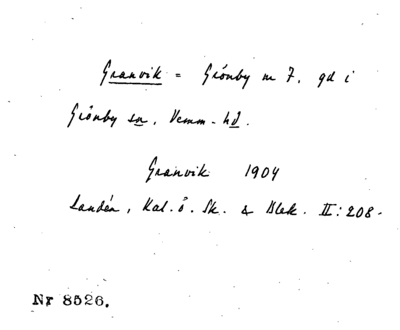 Granvik = Grönby nr 7, gd i
Grönby sn, Vemm. hd.
Granvik 1904
Landén, Kal. ö. Sk. & Blek. II: 208.
Nr 8526.